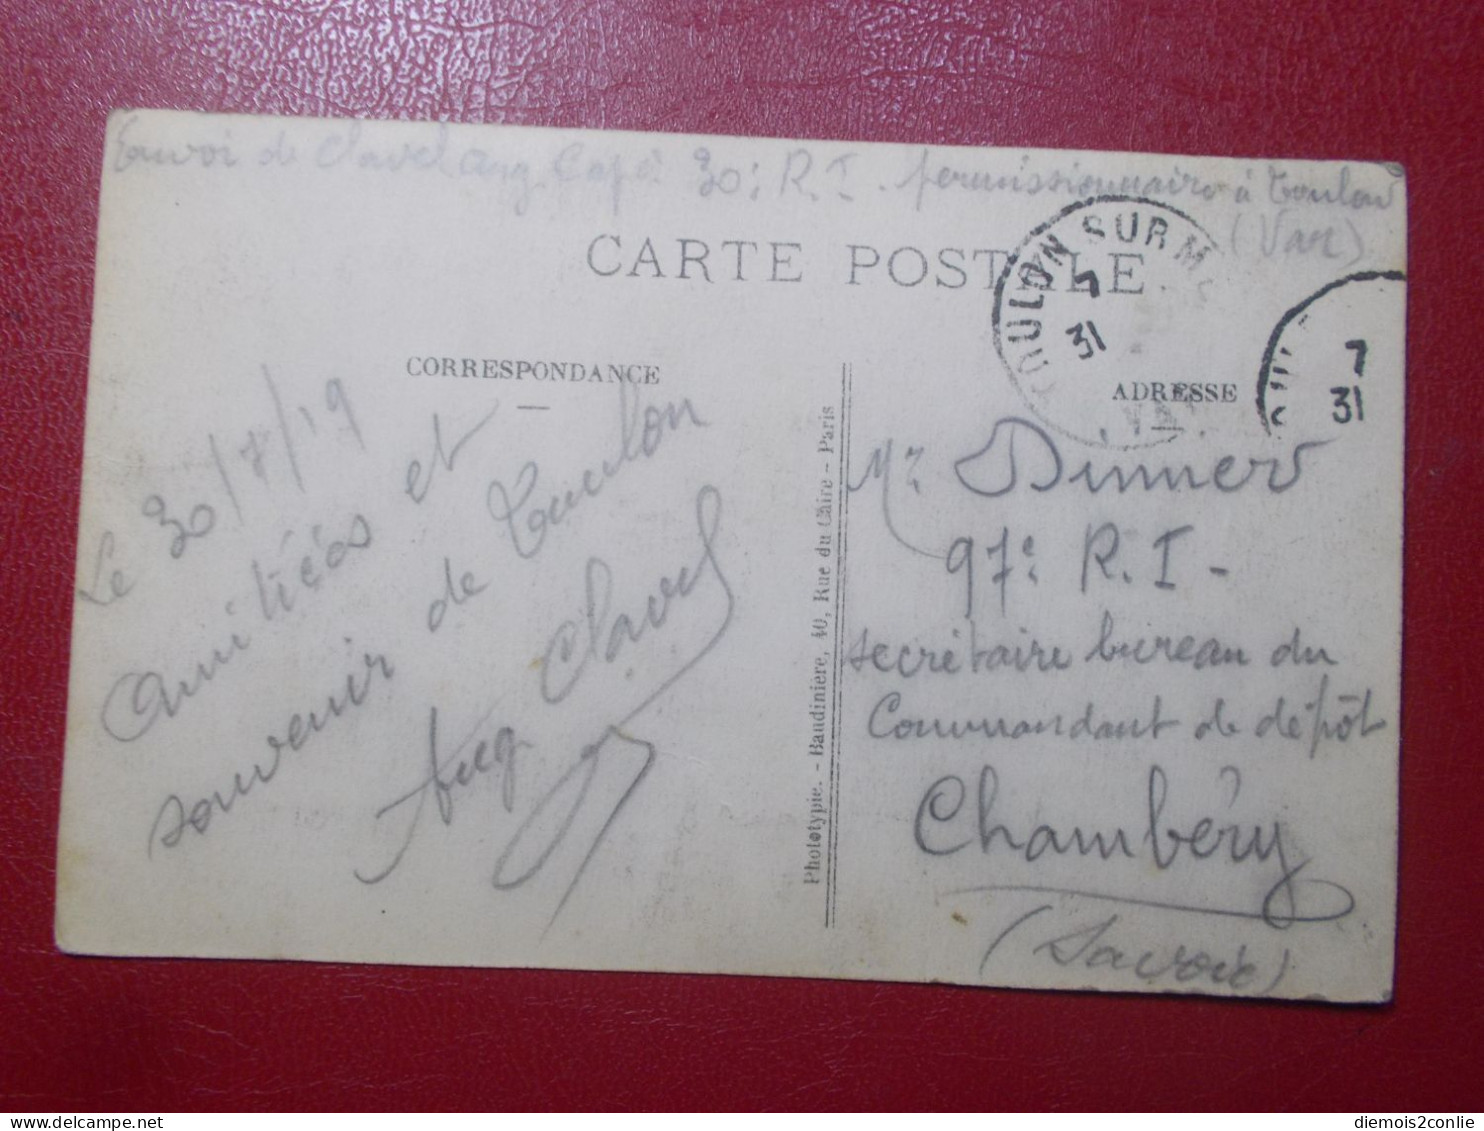 Envoi de Clavel Aug Capl 30e R.I. permissionnaire à Toulon
(Var)
CARTE POSTALE
TOULON SUR M
7
31
VAR
7
31
CORRESPONDANCE
Le 30/7/19
Amitiées et
souvenir de Toulon
Aug Clavel
Phototypie. - Baudinière, 40, Rue du Caire - Paris
ADRESSE
Mr
97e R.I -
secrétaire bureau du
Commandant de dépôt
Chambéry
(Savoie)
diemois2conlie